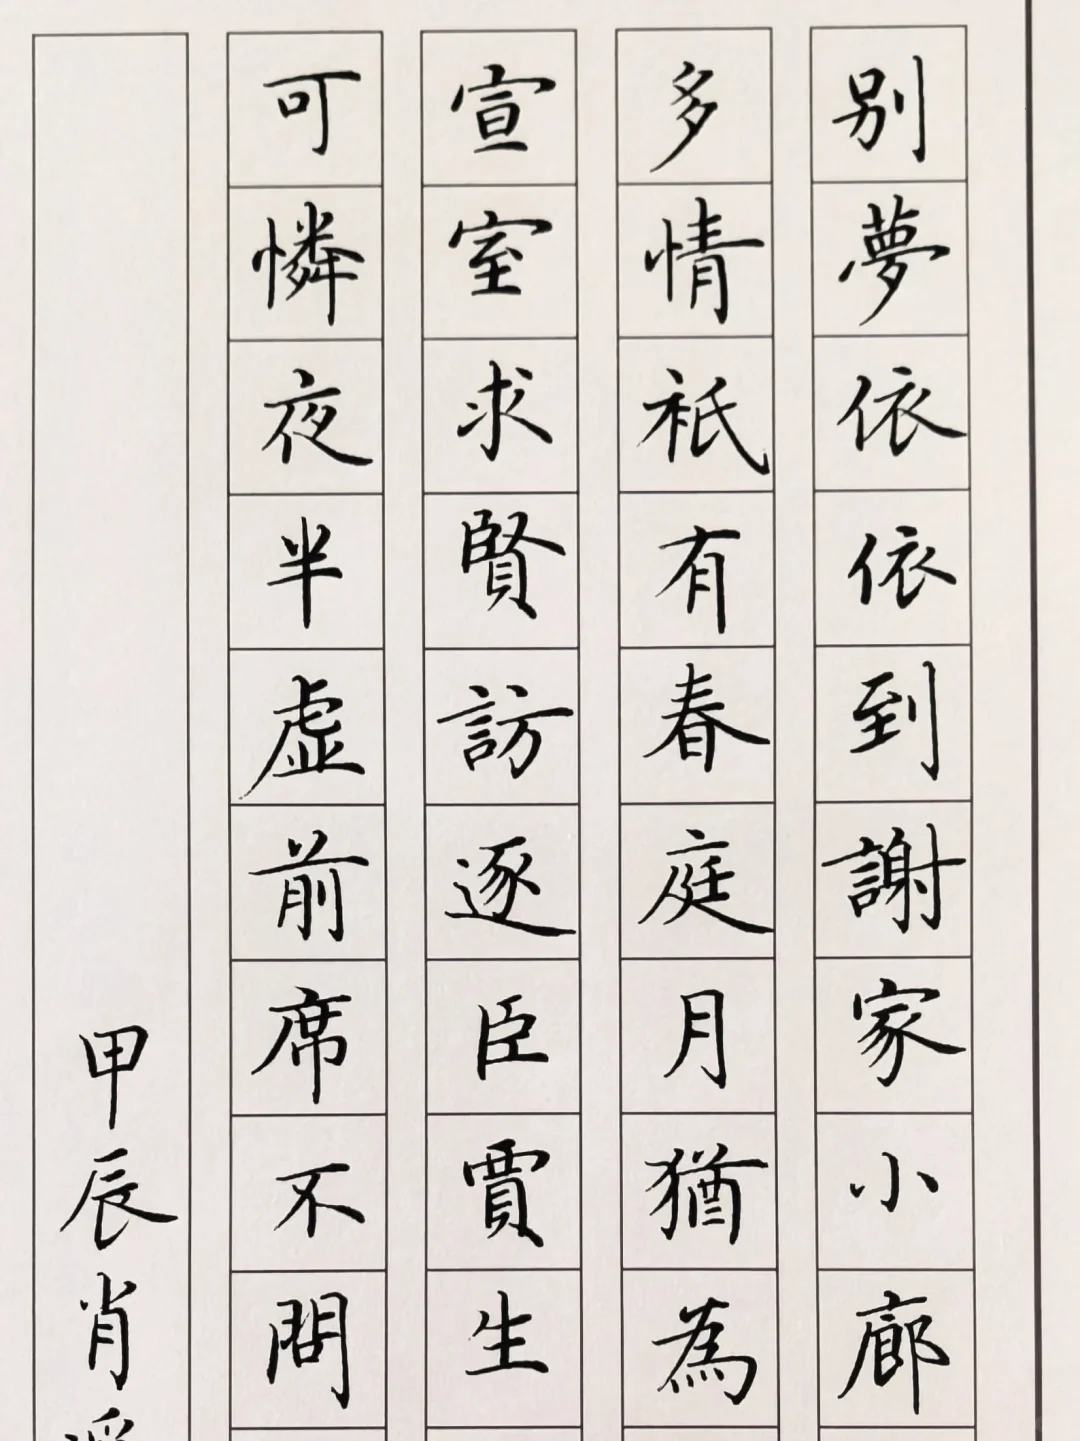 別夢依依到謝家小廊
多情祇有春庭月猶為
宣室求賢訪逐臣賈生
可憐夜半虛前席不問
甲辰肖